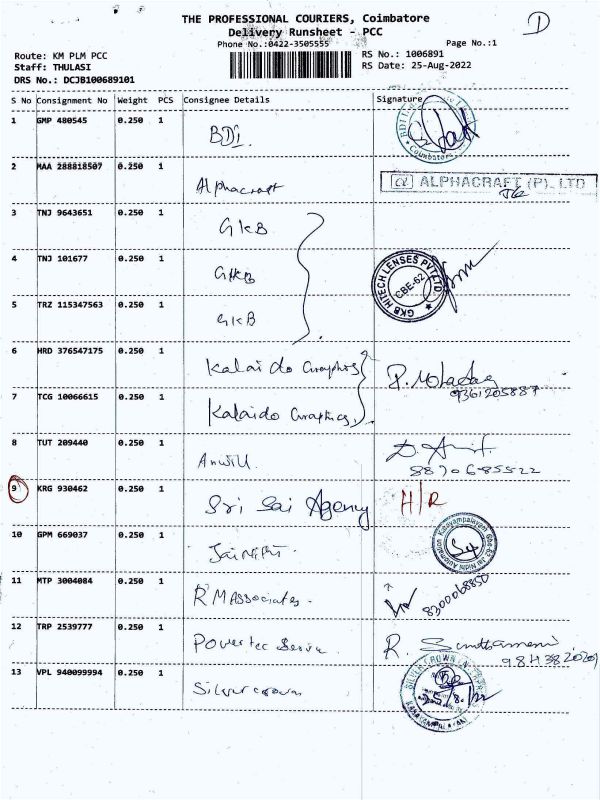 D
THE PROFESSIONAL COURIERS, Coimbatore
Delivery Runsheet - PCC
Phone No.:0422-3505555
Page No.:1
Route: KM PLM PCC
Staff: THULASI
DRS No.: DCJB100689101
RS No.: 1006891
RS Date: 25-Aug-2022
S No Consignment No Weight PCS Consignee Details Signature
1 GMP 480545 0.250 1 BDI.
Coimbatore
2 MAA 288818507 0.250 1 Alphacraft
α ALPHACRAFT (P). LTD
3 TNJ 9643651 0.250 1 GKB
4 TNJ 101677 0.250 1 GKB
GKB HITECH LENSES PVT LTD
CBE-62
5 TRZ 115347563 0.250 1 GKB
6 HRD 376547175 0.250 1 Kalaido Graphics
9361205887
7 TCG 10066615 0.250 1 Kalaido Graphics
8 TUT 209440 0.250 1 Anwill.
8870685522
9 KRG 930462 0.250 1 Sri Sai Agency H/R
10 GPM 669037 0.250 1 Jai Nidhi.
11 MTP 3004084 0.250 1 R M Associates.
8300068850
12 TRP 2539777 0.250 1
R.
13 VPL 940099994 0.250 1 Silver crown
SILVER CROWN